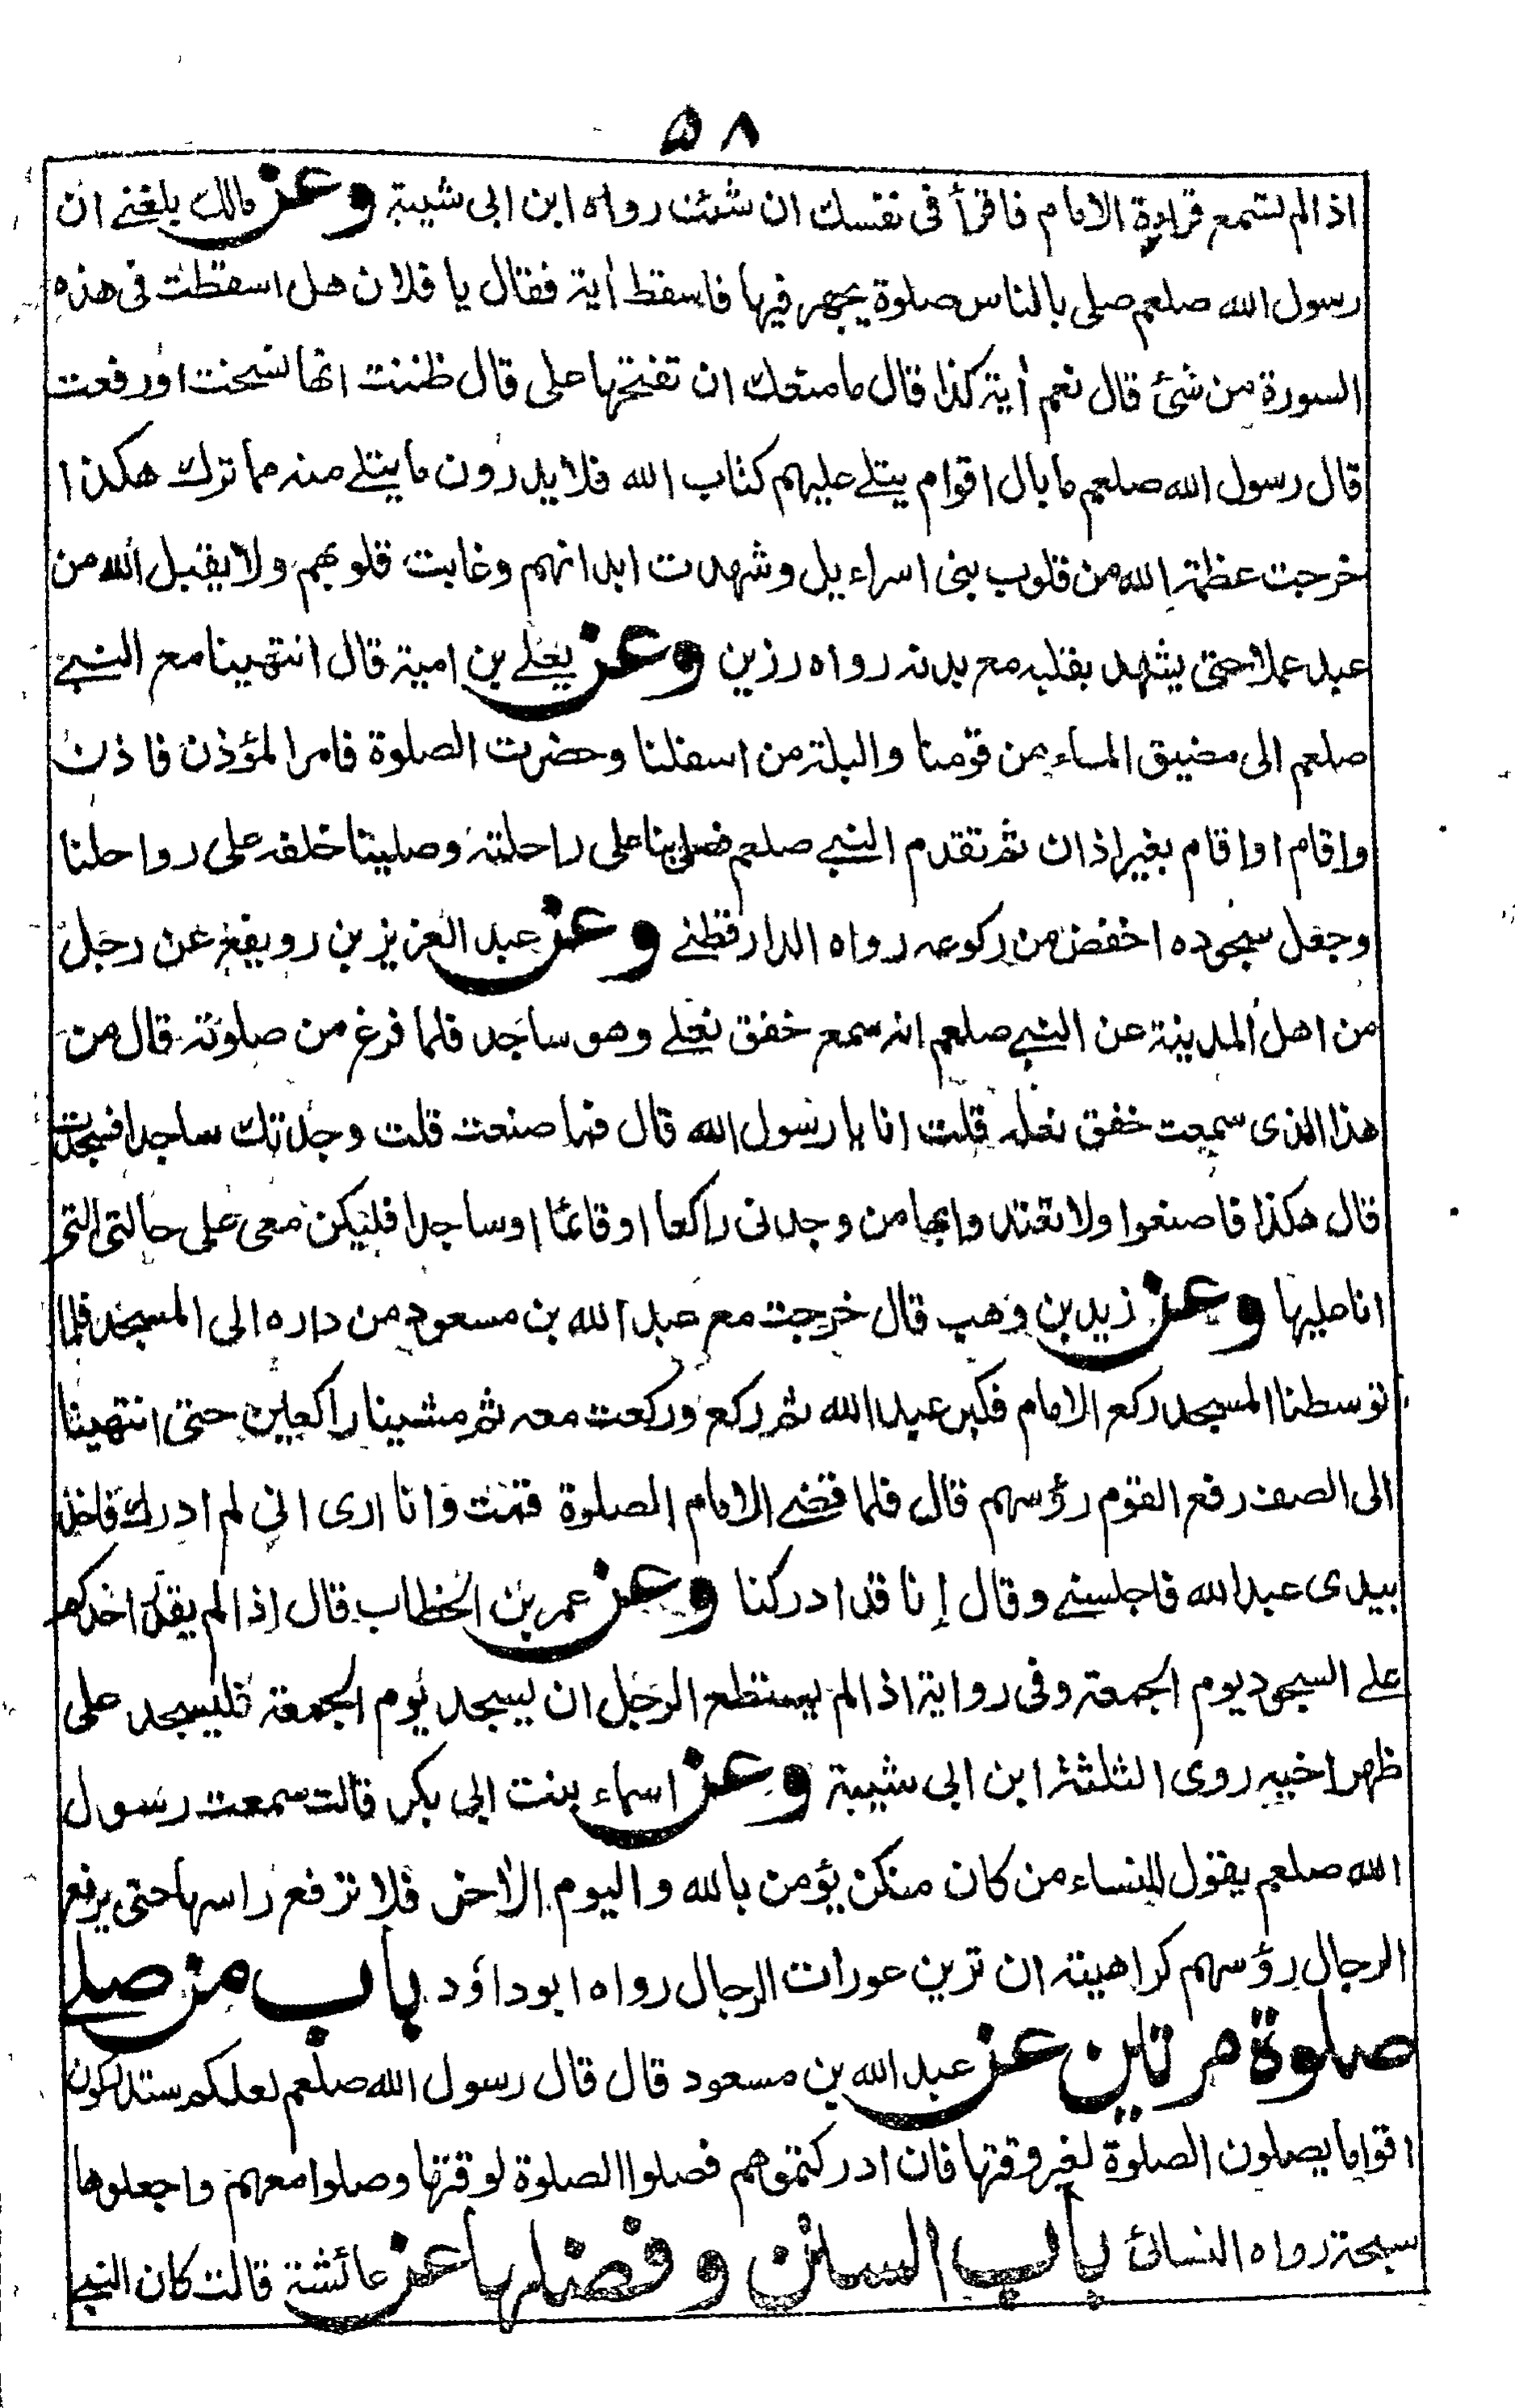 ۵۸
اذا لم تسمع قراءة الامام فاقرأ فى نفسك ان شئت رواه ابن ابى شيبة وعن مالك بلغنے ان
رسول الله صلعم صلى بالناس صلوة يجهر فيها فاسقط أية فقال يا فلان هل اسقطت فى هذه
السورة من شئ قال نعم أية كذا قال ما منعك ان تفتحها على قال ظننت انها نسخت او رفعت
قال رسول الله صلعم ما بال اقوام يتلے عليهم كتاب الله فلا يدرون ما يتلے منه مما ترك هكذا
خرجت عظمة الله من قلوب بنى اسراءيل وشهدت ابدانهم وغابت قلوبهم ولا يقبل الله من
عبد عملا حتى يشهد بقلبه مع بدنه رواه رزين وعن يعلے بن امية قال انتهينا مع النبے
صلعم الى مضيق الماء من فوقنا والبلة من اسفلنا وحضرت الصلوة فامر المؤذن فاذن
واقام او اقام بغير اذان ثم تقدم النبے صلعم فصلى بنا على راحلته وصلينا خلفه على رواحلنا
وجعل سجوده اخفض من ركوعه رواه الدارقطنے وعن عبد العزيز بن رويفع عن رجل
من اهل المدينة عن النبے صلعم انه سمع خفق نعلے وهو ساجد فلما فرغ من صلوته قال من
هذا الذى سمعت خفق نعله قلت انا يا رسول الله قال فما صنعت قلت وجدتك ساجدا فسجدت
قال هكذا فاصنعوا ولا تعتد وا بها من وجدنى راكعا او قائما او ساجدا فليكن معى على حالتى التى
انا عليها وعن زيد بن وهب قال خرجت مع عبد الله بن مسعود من داره الى المسجد فلما
توسطنا المسجد ركع الامام فكبر عبد الله ثم ركع وركعت معه ثم مشينا راكعين حتى انتهينا
الى الصف رفع القوم رؤسهم قال فلما قضے الامام الصلوة قمت وانا ارى انى لم ادرك فاخذ
بيدى عبد الله فاجلسنے وقال إنا قد ادركنا وعن عمر بن الخطاب قال اذا لم يقدر احدكم
علے السجود يوم الجمعة وفى رواية اذا لم يستطع الرجل ان يسجد يوم الجمعة فليسجد على
ظهر اخيه روى الثلثة ابن ابى شيبة وعن اسماء بنت ابى بكر قالت سمعت رسول
الله صلعم يقول للنساء من كان منكن يؤمن بالله واليوم الأخر فلا ترفع راسها حتى يرفع
الرجال رؤسهم كراهية ان ترين عورات الرجال رواه ابو داؤد باب من صلے
صلوة مرتين عن عبد الله بن مسعود قال قال رسول الله صلعم لعلكم ستدركون
اقواما يصلون الصلوة لغير وقتها فان ادركتموهم فصلوا الصلوة لوقتها وصلوا معهم واجعلوها
سبحة رواه النسائ باب السنن وفضلها عن عائشة قالت كان النبے